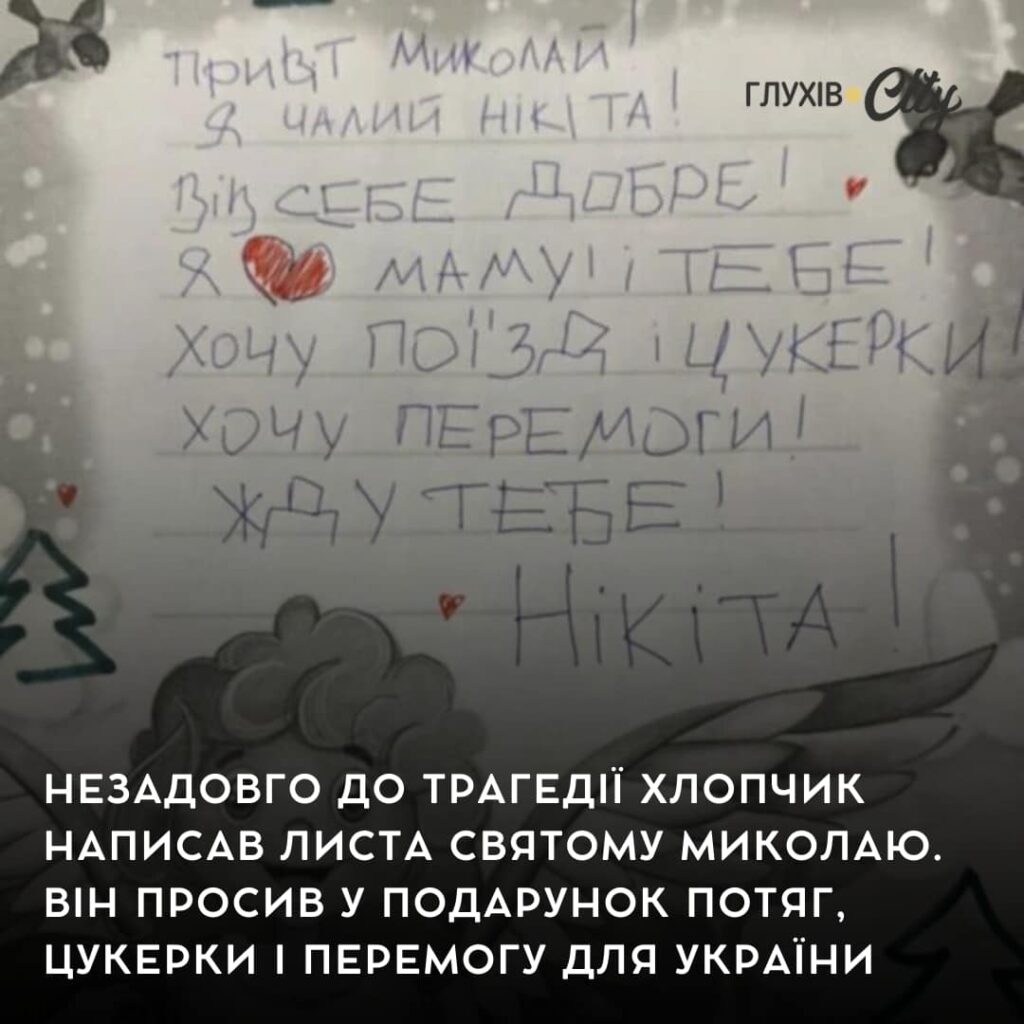 Привіт Миколай!
Я ЧАЛИЙ НІКІТА!
ГЛУХІВ City
Вів СЕБЕ ДОБРЕ!
Я ❤ МАМУ! і ТЕБЕ!
ХОЧУ ПОЇЗД і ЦУКЕРКИ!
ХОЧУ ПЕРЕМОГИ!
ЖДУ ТЕБЕ!
НіКіТА!
НЕЗАДОВГО ДО ТРАГЕДІЇ ХЛОПЧИК
НАПИСАВ ЛИСТА СВЯТОМУ МИКОЛАЮ.
ВІН ПРОСИВ У ПОДАРУНОК ПОТЯГ,
ЦУКЕРКИ І ПЕРЕМОГУ ДЛЯ УКРАЇНИ